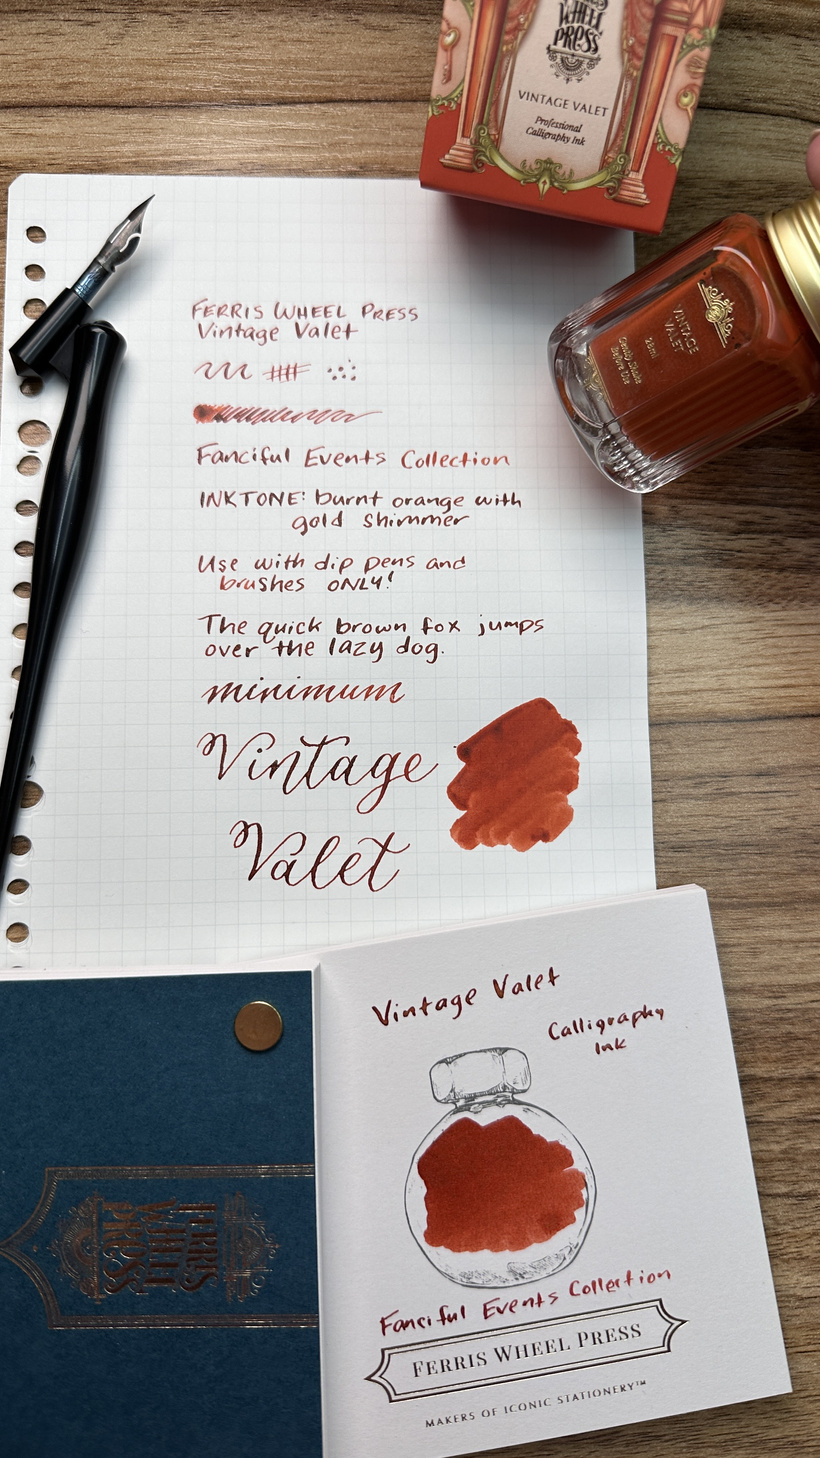 WHEEL
PRESS
VINTAGE VALET
Professional
Calligraphy Ink
VINTAGE
VALET
28ml
Gently Shake
Before Use
FERRIS WHEEL PRESS
Vintage Valet
Fanciful Events Collection
INKTONE: burnt orange with
gold shimmer
Use with dip pens and
brushes ONLY!
The quick brown fox jumps
over the lazy dog.
minimum
Vintage
Valet
FERRIS
WHEEL
PRESS
Vintage Valet
Calligraphy
Ink
Fanciful Events Collection
FERRIS WHEEL PRESS
MAKERS OF ICONIC STATIONERY™